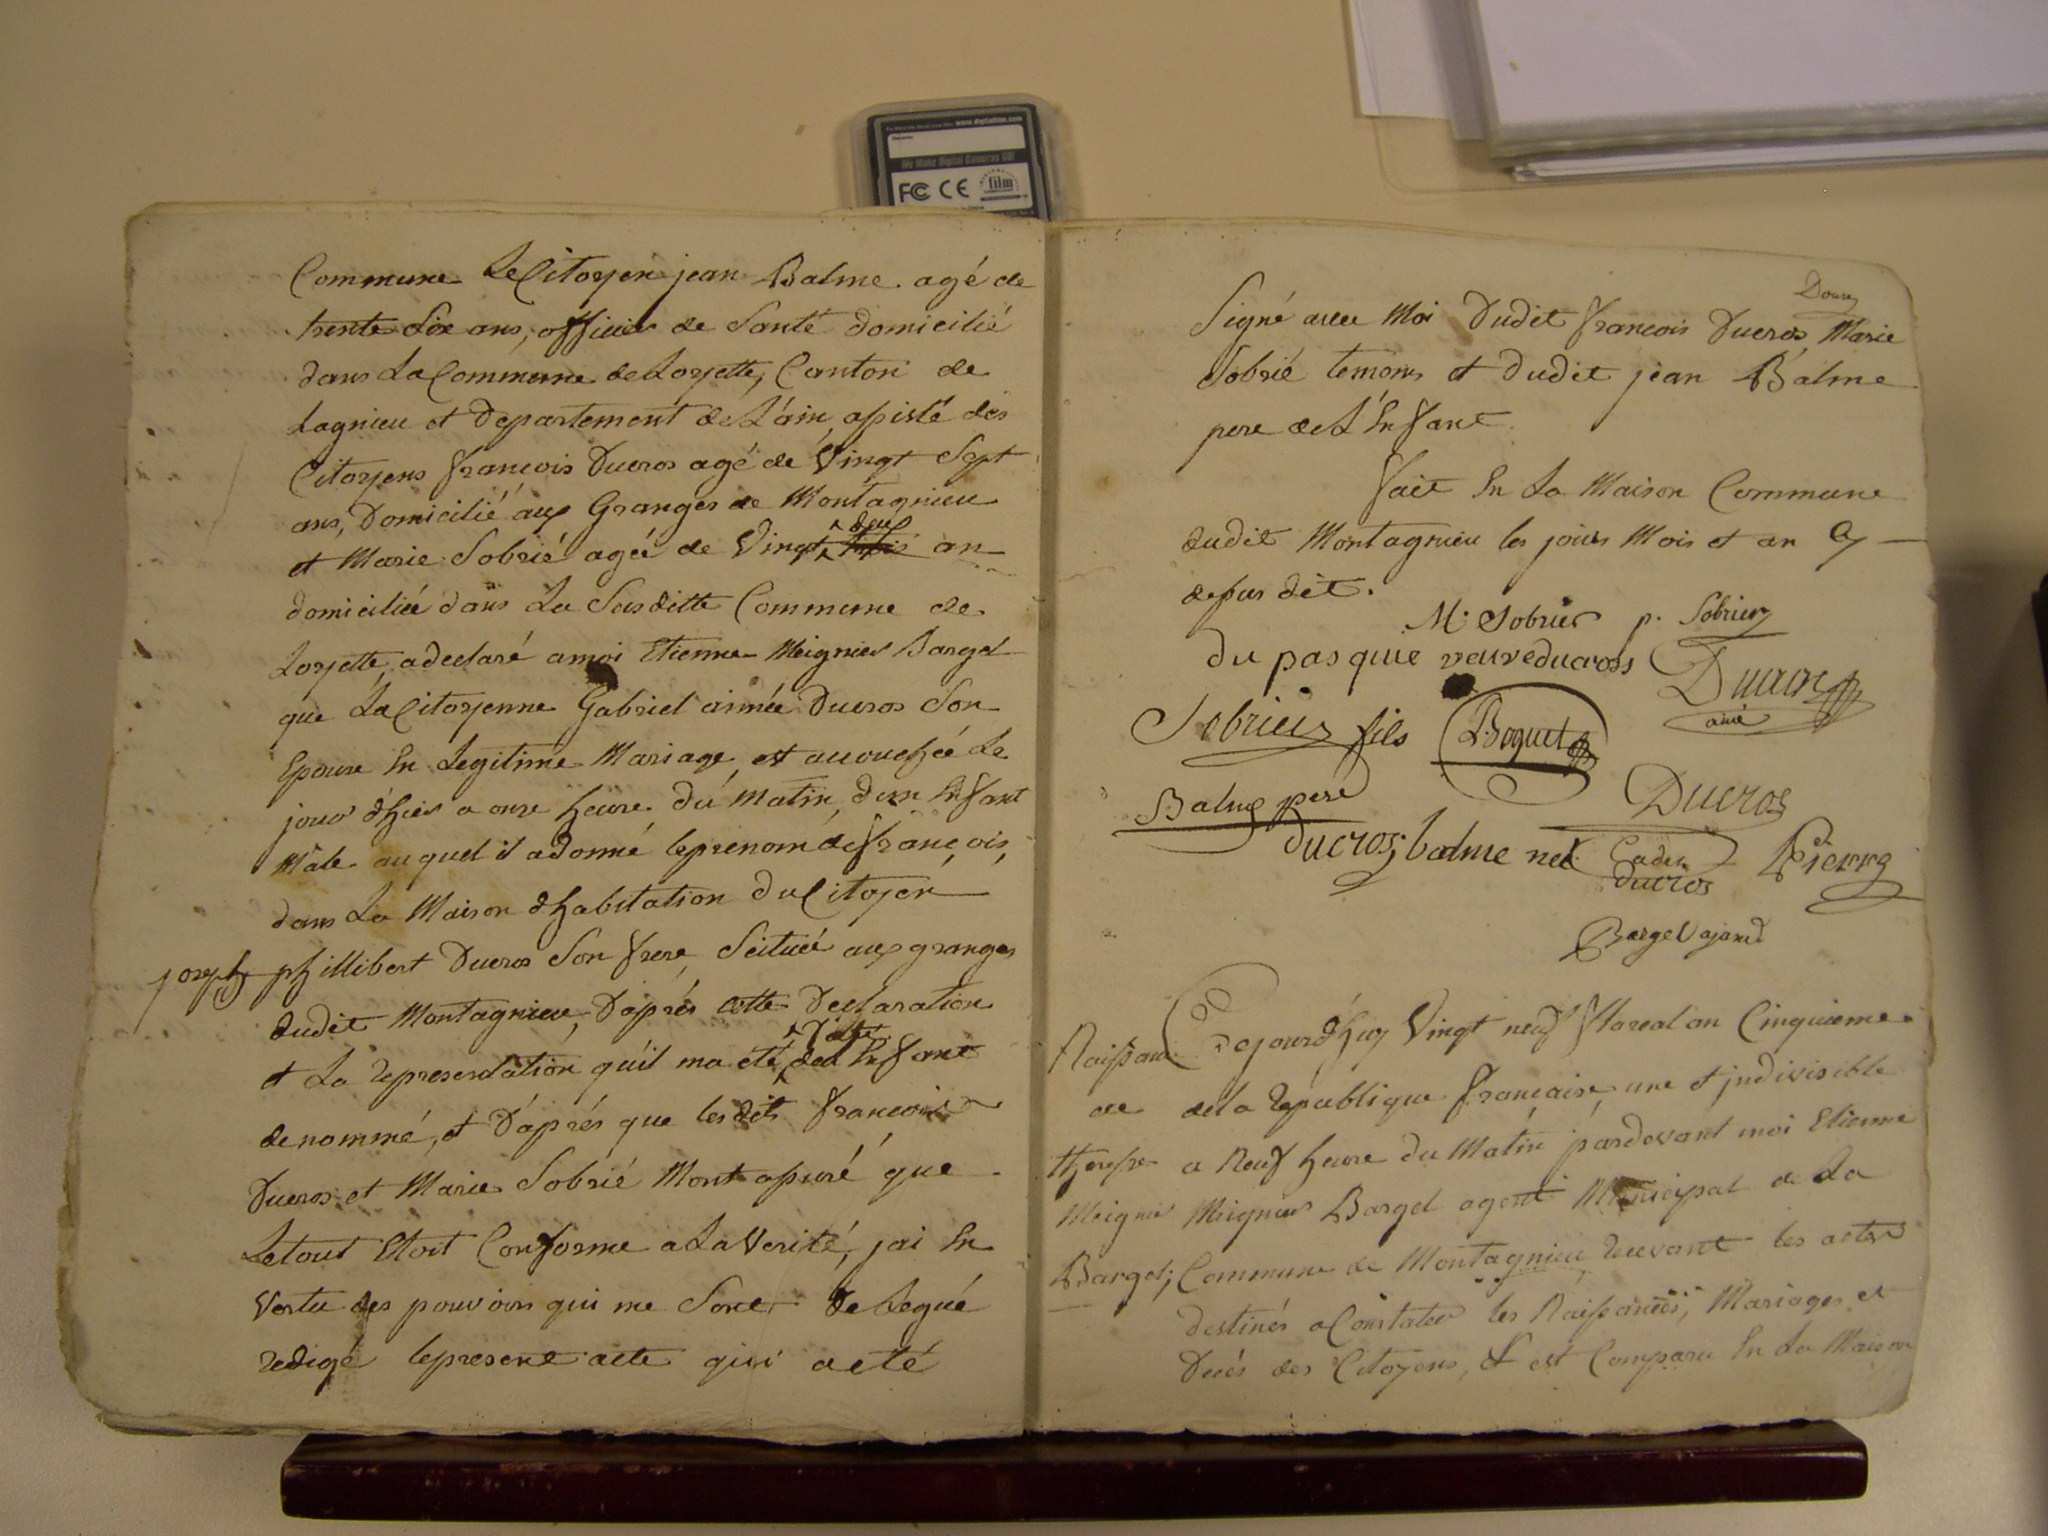 www.digitalfilm.com
We Make Digital Cameras GO!
FC CE film
Commune Le Citoyen jean Balme agé de
trente Six ans, officier de Santé domicilié
dans La Commune de Loyette, Canton de
Lagnieu et Departement de L'ain, assisté des
Citoyens françois Ducros agé de Vingt Sept
ans, Domicilié aux Granges de Montagnieu
deux
et Marie Sobrié agée de Vingt an
domiciliée dans La Susditte Commune de
Loyette, adeclaré amoi Etienne Meignier Bargel
que La Citoyenne Gabriel aimée Ducros Son
Epouse En Legitime Mariage, est accouchée Le
jour d'hier a onze heure du Matin, dun Enfant
Mâle auquel il adonné leprenom de françois,
dans La Maison d'habitation du Citoyen
joseph phillibert Ducros Son frere, Scituée aux granges
dudit Montagnieu, D'aprés cette Declaration
et La representation qu'il ma eté del Enfant
denommé, et D'aprés que lesdits françois
Ducros et Marie Sobrié Mont assuré que
Letout Etoit Conforme a La Verité, jai En
Vertu des pouvoirs qui me Sont Delegué
redigé lepresent acte qui aeté
Douze
Signé avec Moi Dudit françois Ducros, Marie
Sobrié temoins et dudit jean Balme
pere de L'Enfant.
fait En La Maison Commune
dudit Montagnieu les jours Mois et an Cy
dessus dit.
M. Sobrier p. Sobrier
du pasquie veuve ducross Ducros
ainé
Sobrier fils Boquet
Balme pere Ducros
ducros, balme née Cadet
ducros Pierre
Bargel
Naissance Cejourd'huy Vingt neuf floreal an Cinquieme
de dela republique francaise, une et jndivisible
therese a Neuf heure du Matin pardevant moi Etienne
Meignier Meignier Bargel agent Municipal de La
Bargel; Commune de Montagnieu recevant les actes
destinés aConstater les Naissances, Mariages et
Decés des Citoyens, est Comparu En La Maison